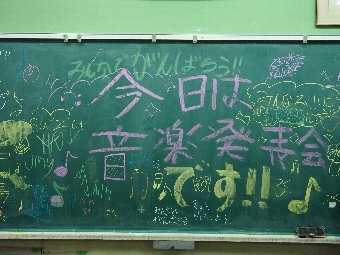 みんなでがんばろう!!
今日は
音楽発表会
です!!